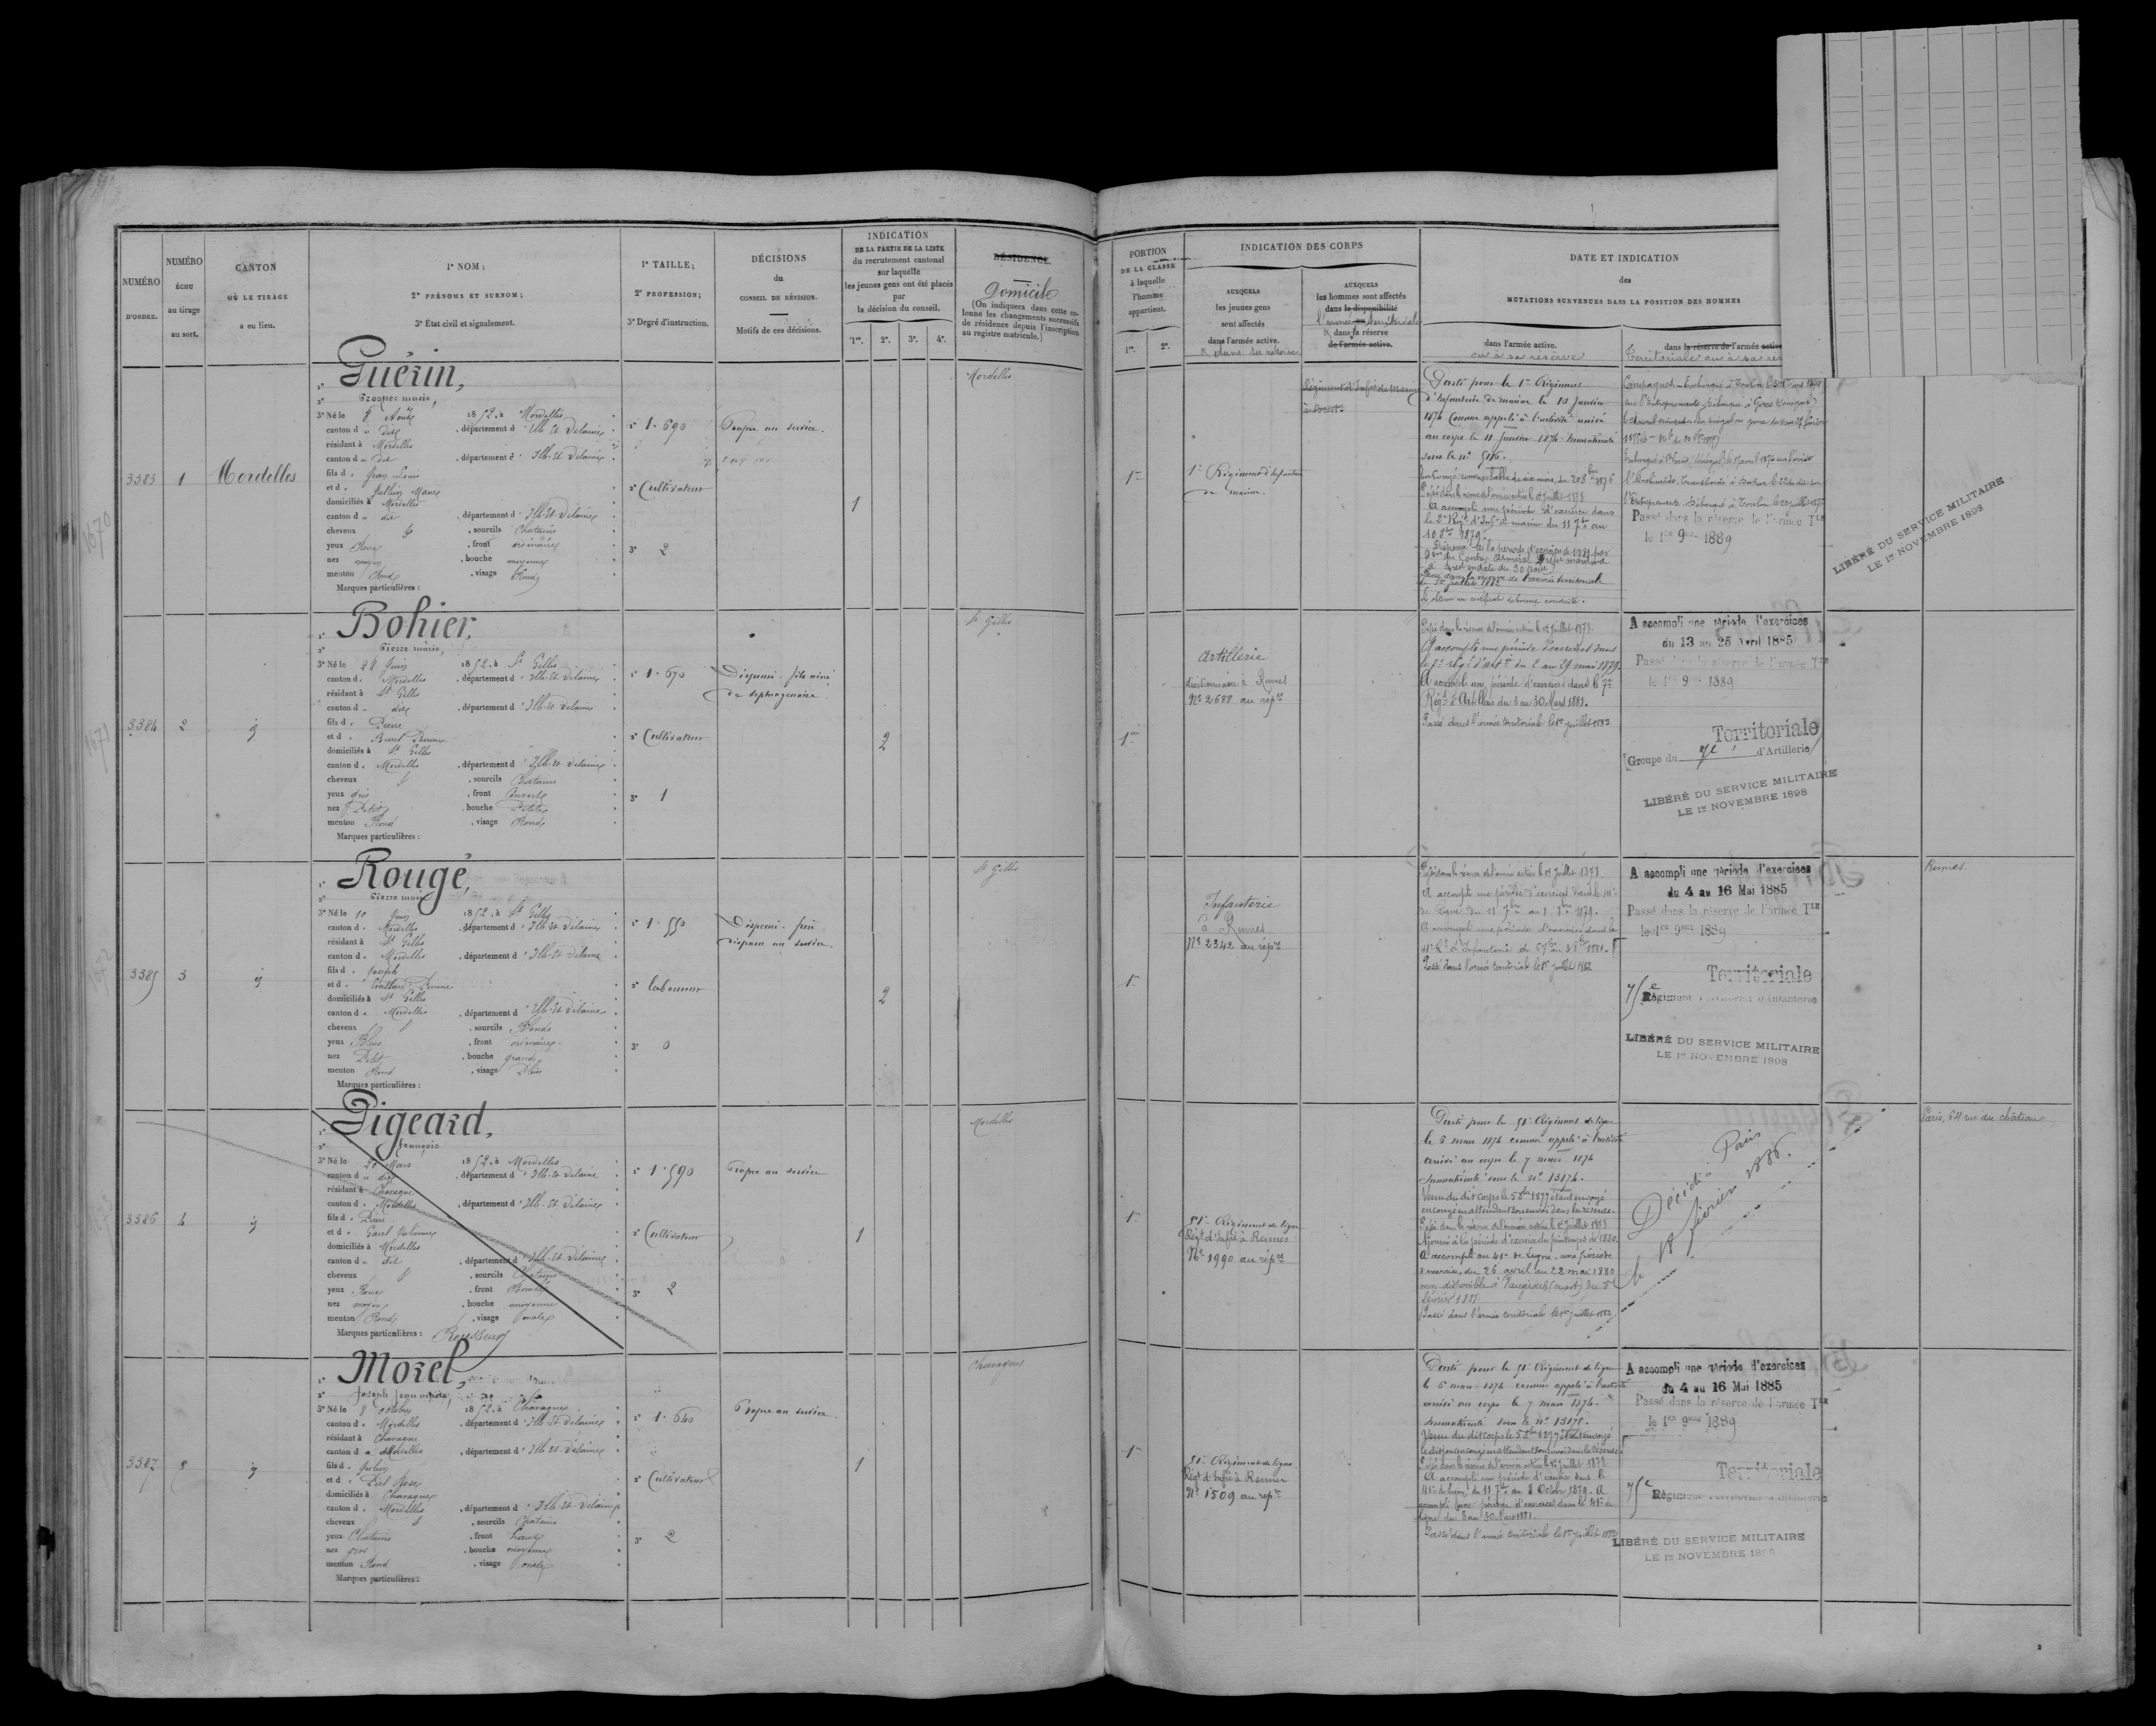 NUMÉRO
D'ORDRE.
NUMÉRO
ÉCHU
au tirage
au sort.
CANTON
OÙ LE TIRAGE
a eu lieu.
1º NOM ;
2º PRÉNOMS ET SURNOM ;
3º État civil et signalement.
1º TAILLE ;
2º PROFESSION ;
3º Degré d'instruction.
DÉCISIONS
du
CONSEIL DE RÉVISION.
Motifs de ces décisions.
INDICATION
DE LA PARTIE DE LA LISTE
du recrutement cantonal
sur laquelle
les jeunes gens ont été placés
par
la décision du conseil.
1re. 2e. 3e. 4e.
RÉSIDENCE
Domicile
(On indiquera dans cette co-
lonne les changements successifs
de résidence depuis l'inscription
au registre matricule.)
PORTION
DE LA CLASSE
à laquelle
l'homme
appartient.
1re. 2e.
INDICATION DES CORPS
AUXQUELS
les jeunes gens
sont affectés
dans l'armée active.
& dans sa réserve
AUXQUELS
les hommes sont affectés
dans la disponibilité
l'armée territoriale
& dans sa réserve
de l'armée active.
DATE ET INDICATION
des
MUTATIONS SURVENUES DANS LA POSITION DES HOMMES
dans l'armée active.
ou à sa réserve
dans la réserve de l'armée active
Territoriale ou à sa rés
3383 1 Mordelles
1º Guérin,
2º Prosper marie,
3º Né le 8 Août 1852, à Mordelles
canton d u dit, département d'Ille-et-Vilaine
résidant à Mordelles
canton d u dit, département d'Ille-et-Vilaine
fils d e Jean Louis
et d e Jullien Marie
domiciliés à Mordelles
canton d u dit, département d'Ille-et-Vilaine
cheveux, sourcils Chatains
yeux Roux, front ordinaire
nez moyen, bouche moyenne
menton Rond, visage Rond
Marques particulières :
1º 1.690
2º Cultivateur
3º 2
Propre au service.
1
Mordelles
1re
1er Régiment d'Infanterie
de marine.
Régiment d'Infrie de Marine
à Brest.
Parti pour le 1er Régiment
d'Infanterie de marine le 10 Janvier
1874 Comme appelé à l'activité arrivé
au corps le 11 Janvier 1874. Immatriculé
Passé dans la réserve de l'armée active le 1er Juillet 1878
A accompli une période d'exercices dans
le 2e Régt d'Infie de marine du 11 7bre au
10 8bre 1879.
Passé dans la réserve de l'armée territoriale
A obtenu un certificat de bonne conduite.
Passé dans la réserve de l'armée Tle
le 1er 9bre 1889
LIBÉRÉ DU SERVICE MILITAIRE
LE 1er NOVEMBRE 1898
3384 2 id
1º Bohier,
2º Pierre marie,
3º Né le 22 Juin 1852, à St Gilles
canton d e Mordelles, département d'Ille-et-Vilaine
résidant à St Gilles
canton d u dit, département d'Ille-et-Vilaine
fils d e Pierre
et d e Burel Perrine
domiciliés à St Gilles
canton d e Mordelles, département d'Ille-et-Vilaine
cheveux, sourcils Chatains
yeux gris, front Couvert
nez Petit, bouche Petite
menton Rond, visage Rond
Marques particulières :
1º 1.670
2º Cultivateur
3º 1
Dispensé. fils ainé
de septuagénaire
2
St Gilles
1re
Artillerie
divisionnaire à Rennes
No 2688 au répre
Passé dans la réserve de l'armée active le 1er Juillet 1878.
A accompli une période d'exercices dans
le 7e régt d'artie du 2 au 29 mai 1879.
A accompli une période d'exercices dans le 7e
Régt d'Artillerie du 3 au 30 Mars 1881.
Passé dans l'armée territoriale le 1er juillet 1883
A accompli une période d'exercices
du 13 au 25 Avril 1885
Passé dans la réserve de l'armée Tle
le 1er 9bre 1889
Territoriale
Groupe du 7e d'Artillerie
LIBÉRÉ DU SERVICE MILITAIRE
LE 1er NOVEMBRE 1898
3385 3 id
1º Rougé,
2º Pierre marie
3º Né le 10 Juin 1852, à St Gilles
canton d e Mordelles, département d'Ille-et-Vilaine
résidant à St Gilles
canton d e Mordelles, département d'Ille-et-Vilaine
fils d e Joseph
et d e Coullard Perrine
domiciliés à St Gilles
canton d e Mordelles, département d'Ille-et-Vilaine
cheveux, sourcils Blonds
yeux Bleus, front ordinaire
nez Petit, bouche grande
menton Rond, visage Plein
Marques particulières :
1º 1.550
2º laboureur
3º 0
Dispensé. frère
disparu au service.
2
St Gilles
1re
Infanterie
à Rennes
No 2342 au répre
Passé dans la réserve de l'armée active le 1er Juillet 1878.
A accompli une période d'exercices dans le 41e
de Ligne du 11 7bre au 8bre 1879.
Passé dans l'armée territoriale le 1er juillet 1883
A accompli une période d'exercices
du 4 au 16 Mai 1885
Passé dans la réserve de l'armée Tle
le 1er 9bre 1889
Territoriale
75e Régiment territorial d'infanterie
LIBÉRÉ DU SERVICE MILITAIRE
LE 1er NOVEMBRE 1898
Rennes.
3386 4 id
1º Pigeard,
2º François
3º Né le 21 Mars 1852, à Mordelles
canton d u dit, département d'Ille-et-Vilaine
résidant à Chavagne
canton d e Mordelles, département d'Ille-et-Vilaine
fils d e Pierre
domiciliés à Mordelles
canton d u dit, département d'Ille-et-Vilaine
cheveux, sourcils Chatains
yeux Roux, front
nez moyen, bouche moyenne
menton Rond, visage ovale
Marques particulières : Rousseurs
1º 1.590
2º Cultivateur
3º 2
Propre au service
1
Mordelles
1re
51e Régiment de ligne
Régt d'Infie à Rennes
No 1990 au répre
Parti pour le 51e Régiment de ligne
le 6 mars 1874 comme appelé à l'activité
arrivé au corps le 7 mars 1874
Immatriculé sous le No 13174.
Passé dans la réserve de l'armée active le 1er Juillet 1878
Ajourné à la période d'exercice du printemps de 1880.
A accompli au 41e de Ligne, une période
d'exercices, du 26 avril au 22 mai 1880
Passé dans l'armée territoriale le 1er juillet 1883
Décédé à Paris
le 18 février 1886.
Paris, 64 rue du château
3387 5 id
1º Morel,
2º Joseph Jean marie,
3º Né le 8 octobre 1852, à Chavagne
canton d e Mordelles, département d'Ille-et-Vilaine
résidant à Chavagne
canton d e Mordelles, département d'Ille-et-Vilaine
fils d e Julien
et d e Piel Rose
domiciliés à Chavagne
canton d e Mordelles, département d'Ille-et-Vilaine
cheveux, sourcils Chatains
yeux Chatains, front haut
nez gros, bouche moyenne
menton Rond, visage ovale
Marques particulières :
1º 1.640
2º Cultivateur
3º 2
Propre au service
1
Chavagne
1re
51e Régiment de ligne
Régt d'Infie à Rennes
No 1509 au répre
Parti pour le 51e Régiment de ligne
le 6 mars 1874 comme appelé à l'activité
arrivé au corps le 7 mars 1874.
Passé dans la réserve de l'armée active le 1er Juillet 1878
A accompli une période d'exercice dans le
41e de ligne, du 11 7bre au 8 Octobre 1879. A
accompli une période d'exercices dans le 41e de
ligne du 3 au 30 Mars 1881.
Passé dans l'armée territoriale le 1er juillet 1883
A accompli une période d'exercices
du 4 au 16 Mai 1885
Passé dans la réserve de l'armée Tle
le 1er 9bre 1889
Territoriale
75e Régiment territorial d'infanterie
LIBÉRÉ DU SERVICE MILITAIRE
LE 1er NOVEMBRE 1898
1670
1671
1672